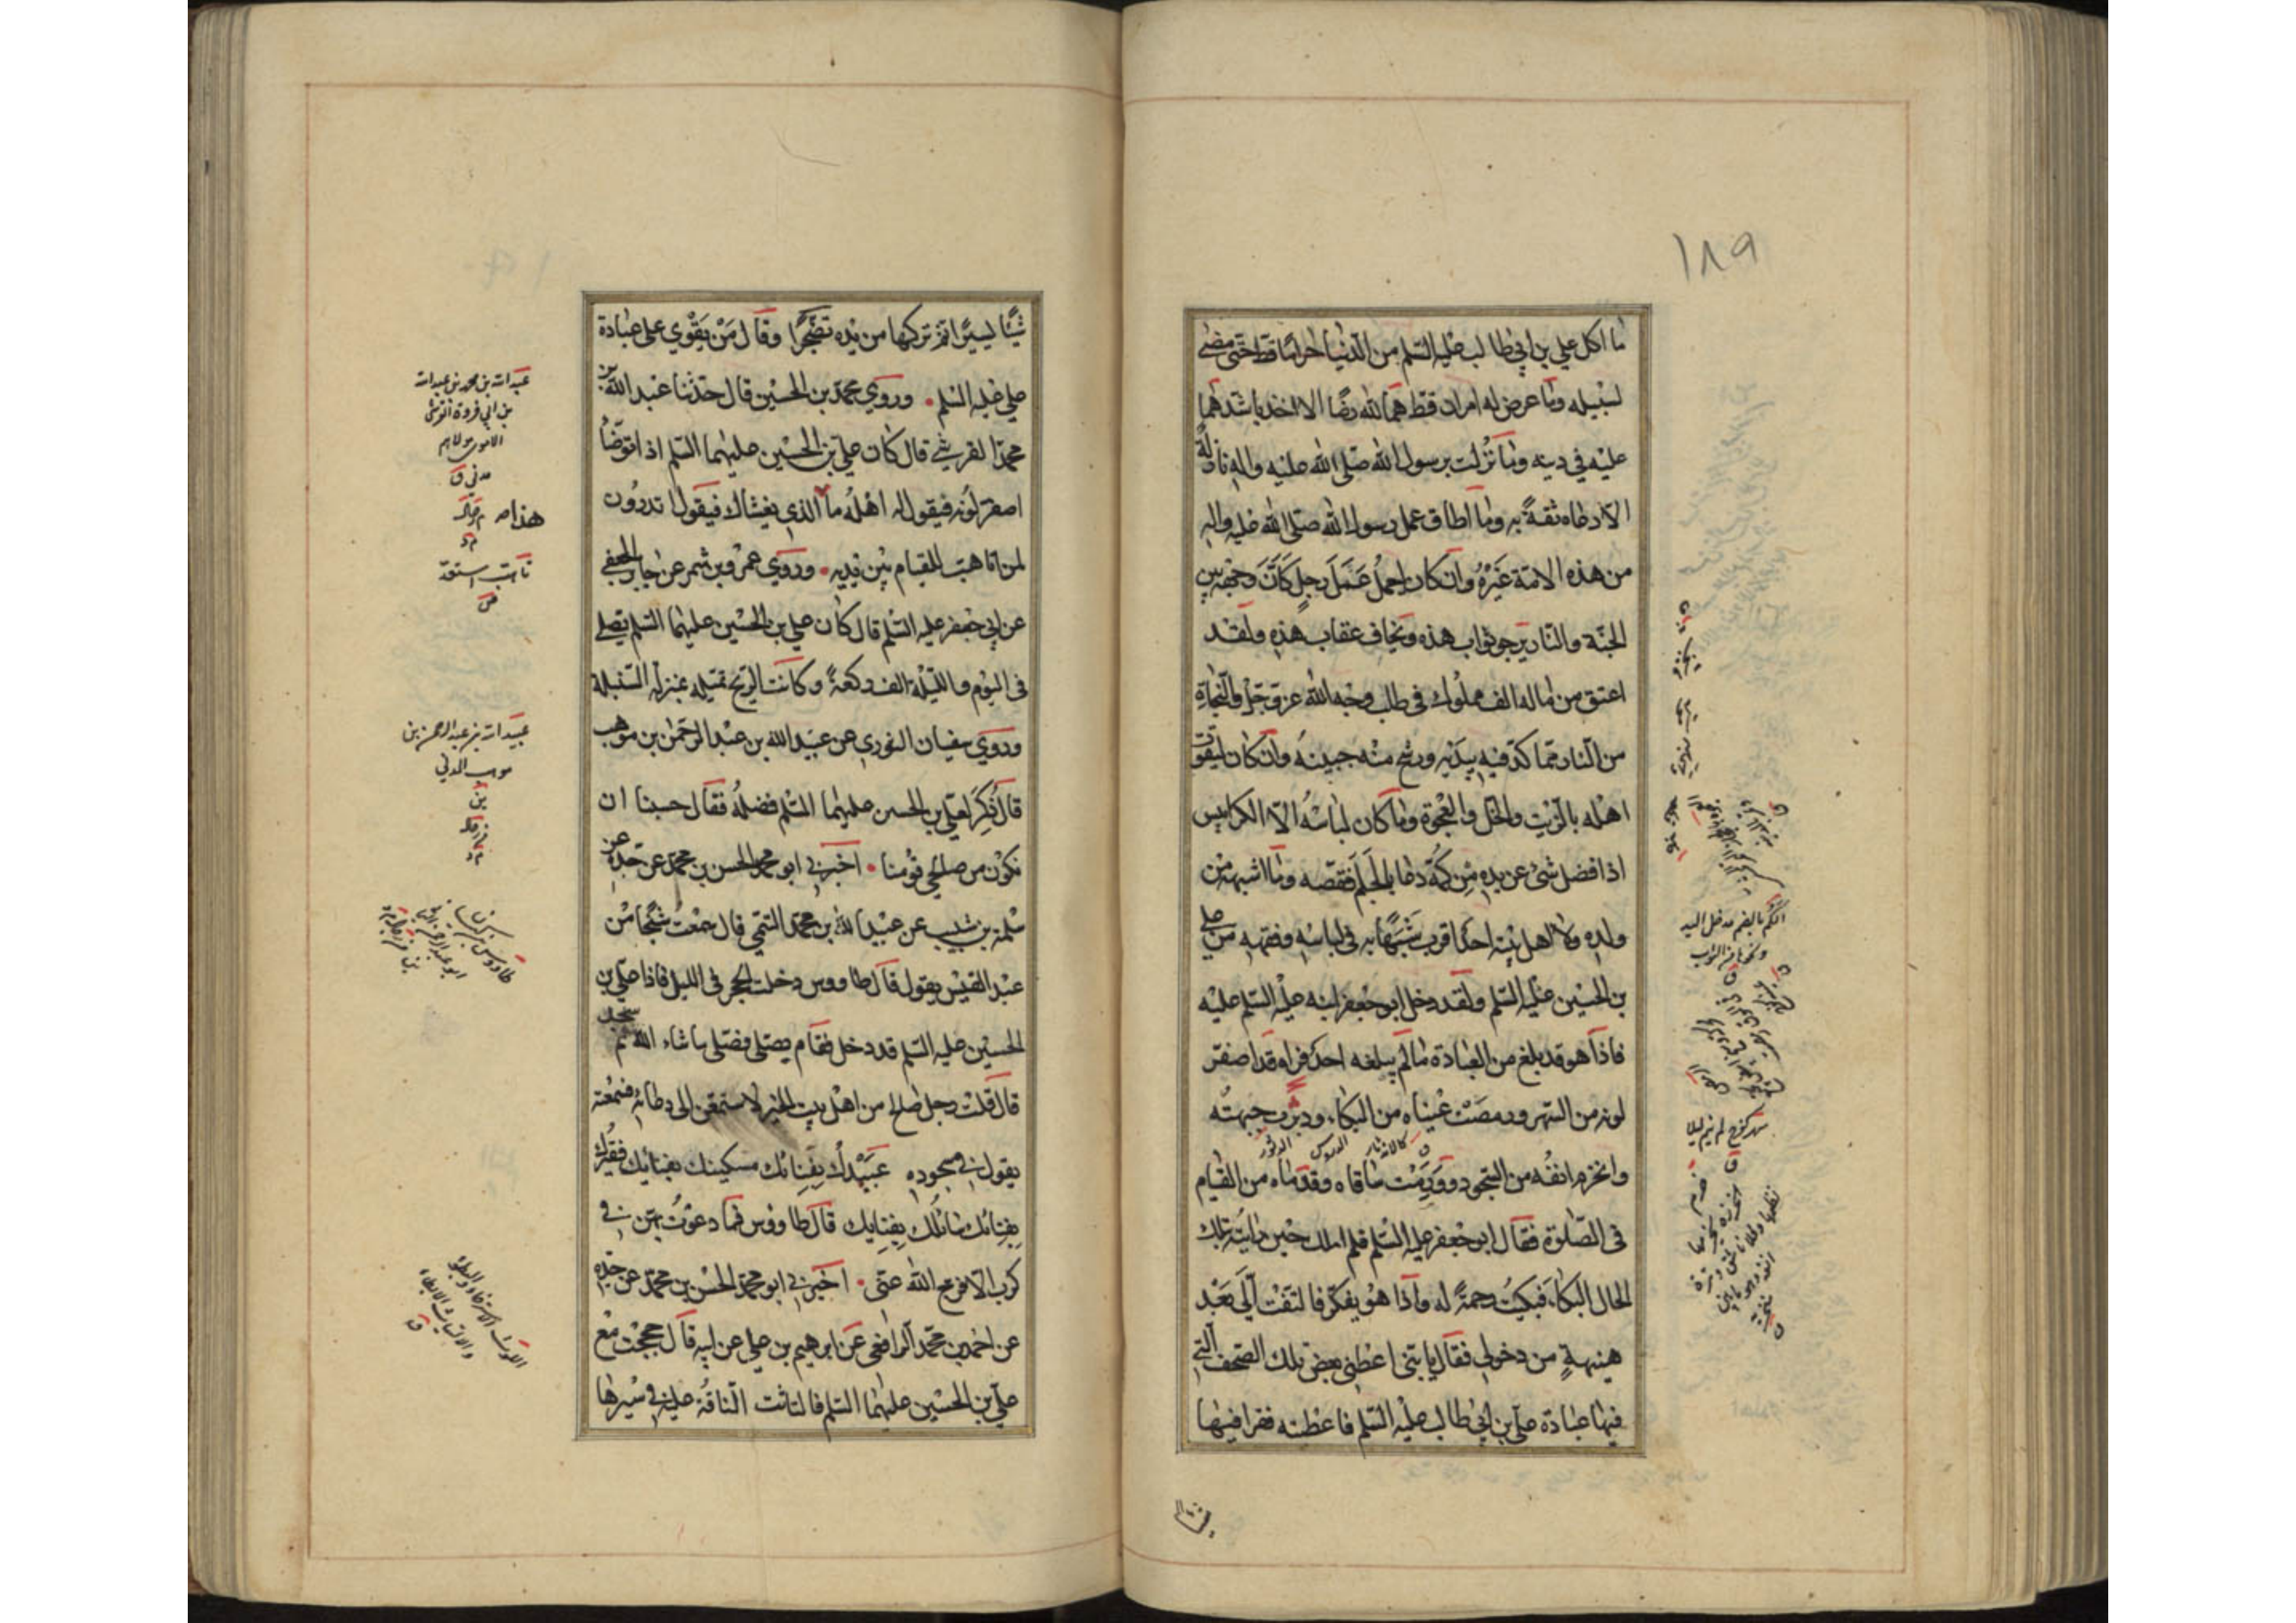 ١٨٩
ما اكل علي بن ابي طالب عليه السلم من الدنيا حراما قط حتى مضى
لسبيله وما عرض له امران قط هما لله رضًا الا اخذ باشدهما
عليه في دينه وما نزلت برسول الله صلى الله عليه واله نازلة
الا دعاه ثقةً به وما اطاق عمل رسول الله صلى الله عليه واله
من هذه الامة غيره وان كان ليعمل عمل رجل كان وجهه بين
الجنة والنار يرجو ثواب هذه ويخاف عقاب هذه ولقد
اعتق من ماله الف مملوك في طلب وجه الله عز وجل والنجاة
من النار مما كد فيه بيديه ورشح منه جبينه وان كان ليقوت
اهله بالزيت والخل والعجوة وما كان لباسه الا الكرابيس
اذا فضل شئ عن يده من كمه دعا بالجلم فقصه وما اشبهه من
ولده ولا اهل بيته احد اقرب شبهًا به في لباسه وفقهه من علي
بن الحسين عليه السلم ولقد دخل ابو جعفر ابنه عليه السلم عليه
فاذا هو قد بلغ من العبادة ما لم يبلغه احد فراه قد اصفر
لونه من السهر ورمصت عيناه من البكاء ودبرت جبهته
وانخرم انفه من السجود وورمت ساقاه وقدماه من القيام
في الصلوة فقال ابو جعفر عليه السلم فلم املك حين رايته بتلك
الحال البكاء فبكيت رحمةً له واذا هو يفكر فالتفت الي بعد
هنيهةٍ من دخولي فقال يا بني اعطني بعض تلك الصحف التي
فيها عبادة علي بن ابي طالب عليه السلم فاعطيته فقرا فيها
الكم بالضم مدخل اليد
ومخرجها من الثوب
سهر كفرح لم ينم ليلا
شيئًا يسيرًا ثم تركها من يده تضجرًا وقال من يقوي على عبادة
علي عليه السلم • وروي محمد بن الحسين قال حدثنا عبد الله بن
محمد القرشي قال كان علي بن الحسين عليهما السلم اذا توضأ
اصفر لونه فيقول له اهله ما الذي يغشاك فيقول اتدرون
لمن اتاهب للقيام بين يديه • وروي عمرو بن شمر عن جابر الجعفي
عن ابي جعفر عليه السلم قال كان علي بن الحسين عليهما السلم يصلي
في اليوم والليلة الف ركعةً وكانت الريح تميله بمنزلة السنبلة
وروي سفيان الثوري عن عبيد الله بن عبد الرحمن بن موهب
قال ذكر لعلي بن الحسين عليهما السلم فضله فقال حسبنا ان
نكون من صالحي قومنا • اخبرني ابو محمد الحسن بن محمد عن جده عن
سلمة بن شبيب عن عبيد الله بن محمد التيمي قال سمعت شيخًا من
عبد القيس يقول قال طاووس دخلت الحجر في الليل فاذا علي بن
الحسين عليه السلم قد دخل فقام يصلي فصلى ما شاء الله ثم سجد
قال قلت رجل صالح من اهل بيت الخير لاستمعن الى دعائه فسمعته
يقول في سجوده عبيدك بفنائك مسكينك بفنائك فقيرك
بفنائك سائلك بفنايك قال طاووس فما دعوت بهن في
كرب الا فرج الله عني • اخبرني ابو محمد الحسن بن محمد عن جده
عن احمد بن محمد الرافعي عن ابرهيم بن علي عن ابيه قال حججت مع
علي بن الحسين عليهما السلم فالتاثت الناقة عليه في سيرها
عبيد الله بن محمد بن عبد الله
بن ابي فروة القرشي
الاموي مولاهم
مدني ق
عبيد الله بن عبد الرحمن بن
موهب المدني